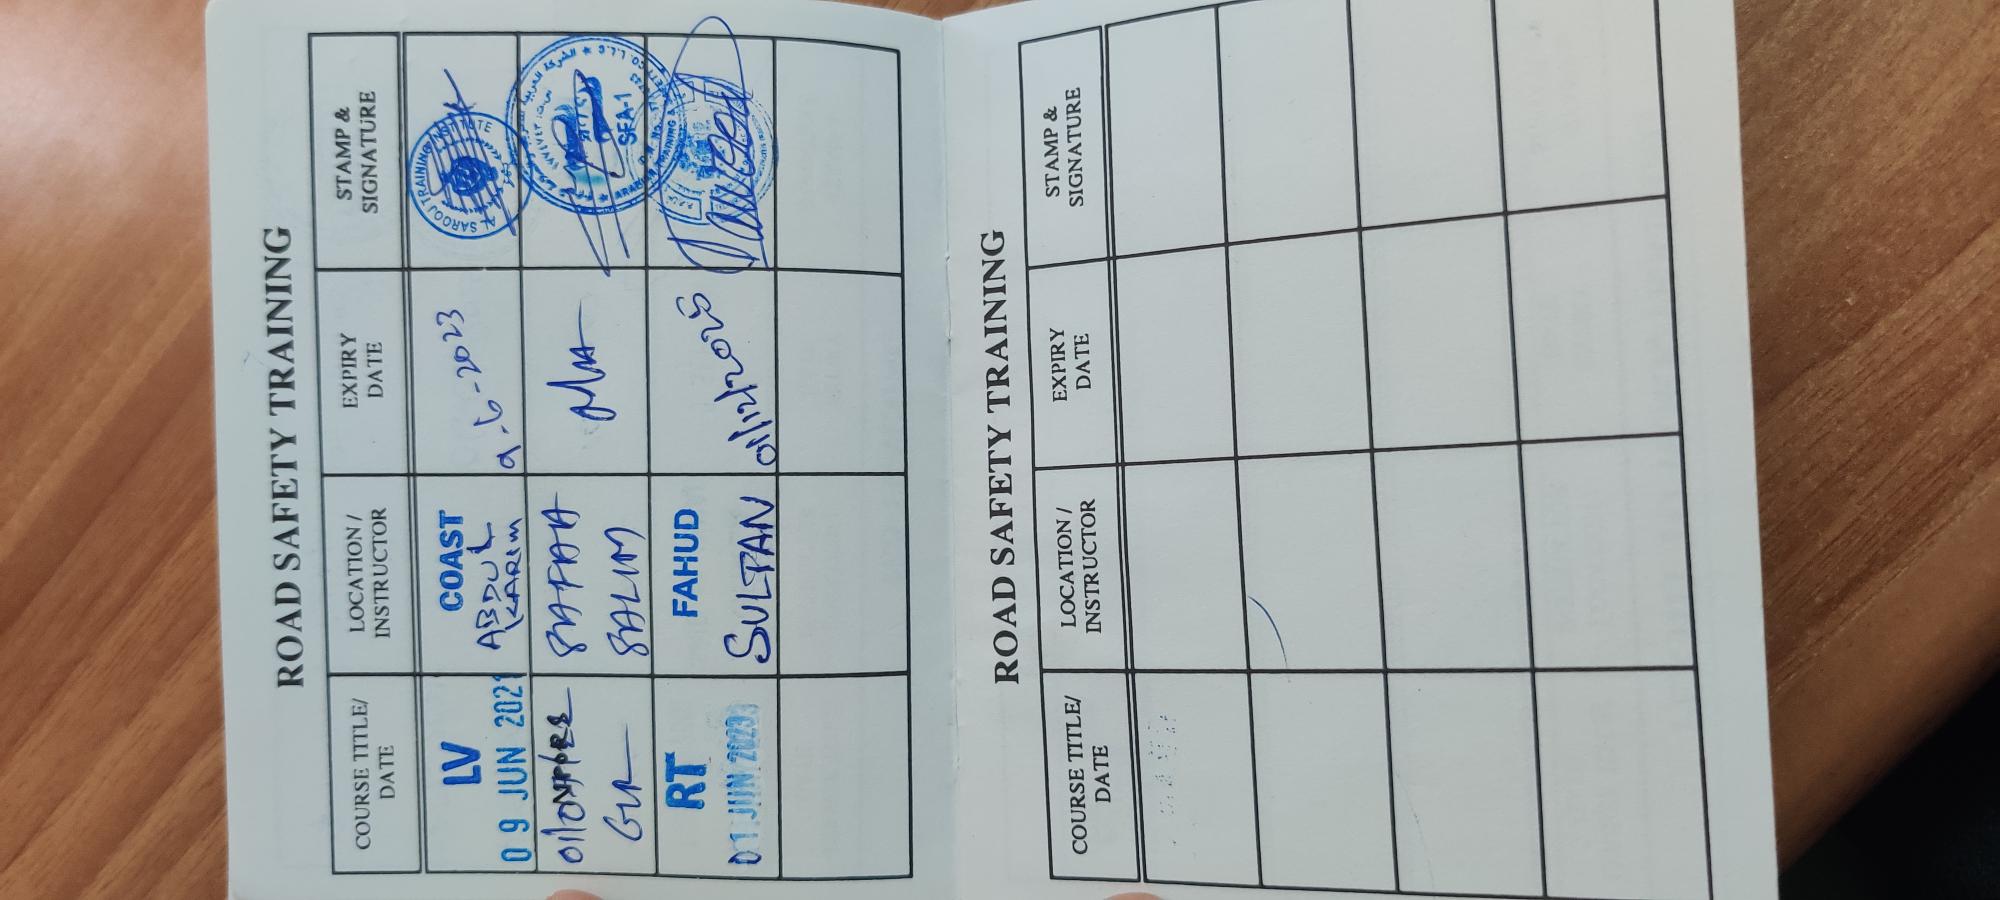 ROAD SAFETY TRAINING
COURSE TITLE/
DATE
LOCATION /
INSTRUCTOR
EXPIRY
DATE
STAMP &
SIGNATURE
LV
09 JUN 2021
COAST
ABDUL
KARIM
9-6-2023
AL SAROOJ TRAINING INSTITUTE
SALIM
SFA-1
RT
01 JUN 2023
FAHUD
SULTAN
ROAD SAFETY TRAINING
COURSE TITLE/
DATE
LOCATION /
INSTRUCTOR
EXPIRY
DATE
STAMP &
SIGNATURE